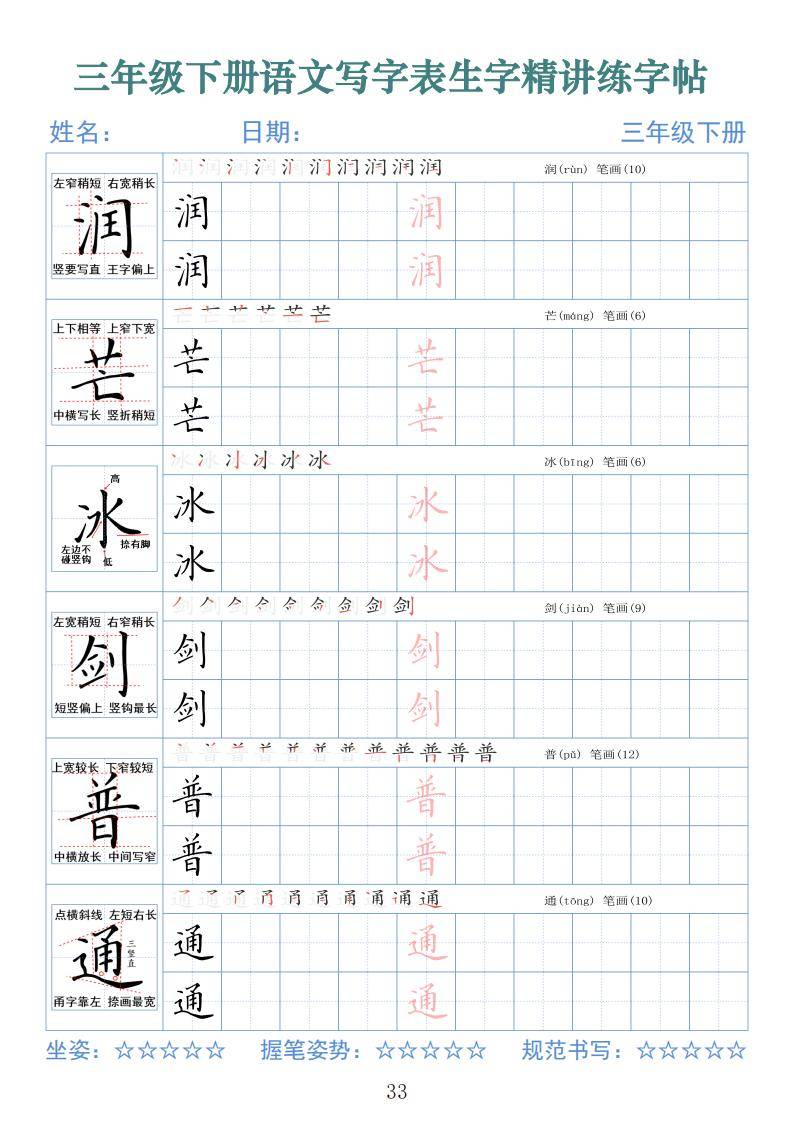 三年级下册语文写字表生字精讲练字帖
姓名： 日期： 三年级下册
润 润 润 润 润 润 润 润 润 润 润(rùn) 笔画(10)
左窄稍短 右宽稍长
润
竖要写直 王字偏上
润 润
润 润
芒 芒 芒 芒 芒 芒 芒(máng) 笔画(6)
上下相等 上窄下宽
芒
中横写长 竖折稍短
芒 芒
芒 芒
冰 冰 冰 冰 冰 冰 冰(bīng) 笔画(6)
高
冰
左边不碰竖钩
捺有脚
低
冰 冰
冰 冰
剑 剑 剑 剑 剑 剑 剑 剑 剑 剑(jiàn) 笔画(9)
左宽稍短 右窄稍长
剑
短竖偏上 竖钩最长
剑 剑
剑 剑
普 普 普 普 普 普 普 普 普 普 普 普 普(pǔ) 笔画(12)
上宽较长 下窄较短
普
中横放长 中间写窄
普 普
普 普
通 通 通 通 通 通 通 通 通 通 通(tōng) 笔画(10)
点横斜线 左短右长
通
三竖直
甬字靠左 捺画最宽
通 通
通 通
坐姿：☆☆☆☆☆ 握笔姿势：☆☆☆☆☆ 规范书写：☆☆☆☆☆
33